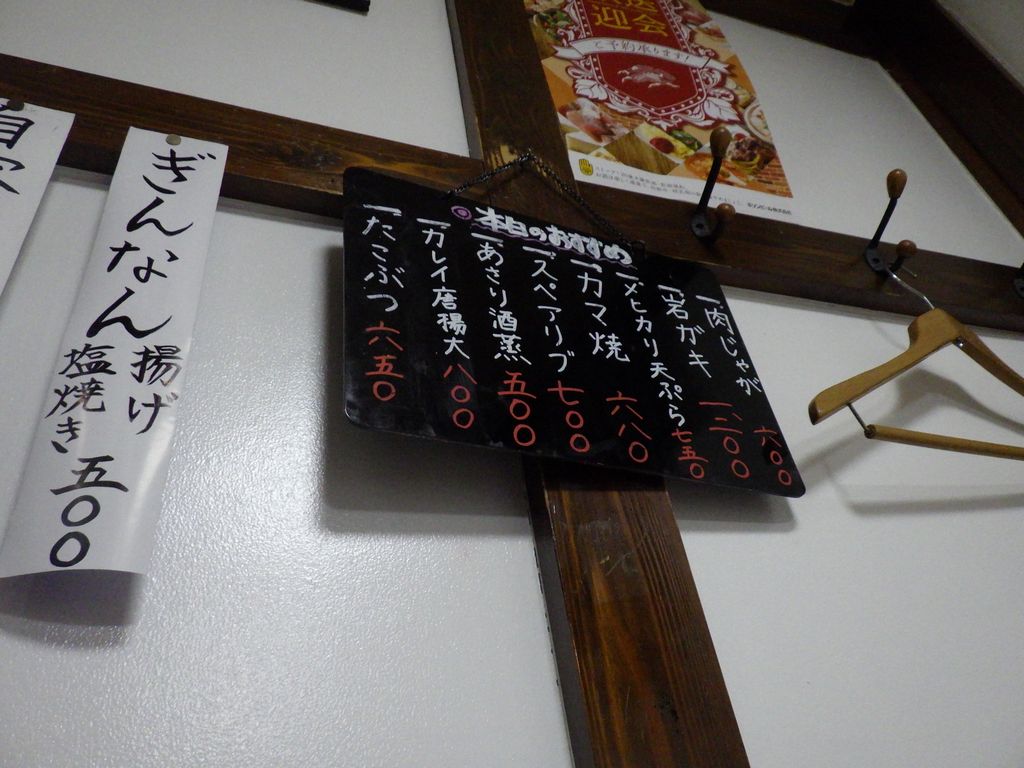 迎会
ご予約承ります!
◎本日のおすすめ
一肉じゃが 六〇〇
一岩ガキ 一二〇〇
一メヒカリ天ぷら 七五〇
一カマ焼 六八〇
一スペアリブ 七〇〇
一あさり酒蒸 五〇〇
一カレイ唐揚大 八〇〇
一たこぶつ 六五〇
ぎんなん 揚げ
塩焼き 五〇〇
自家